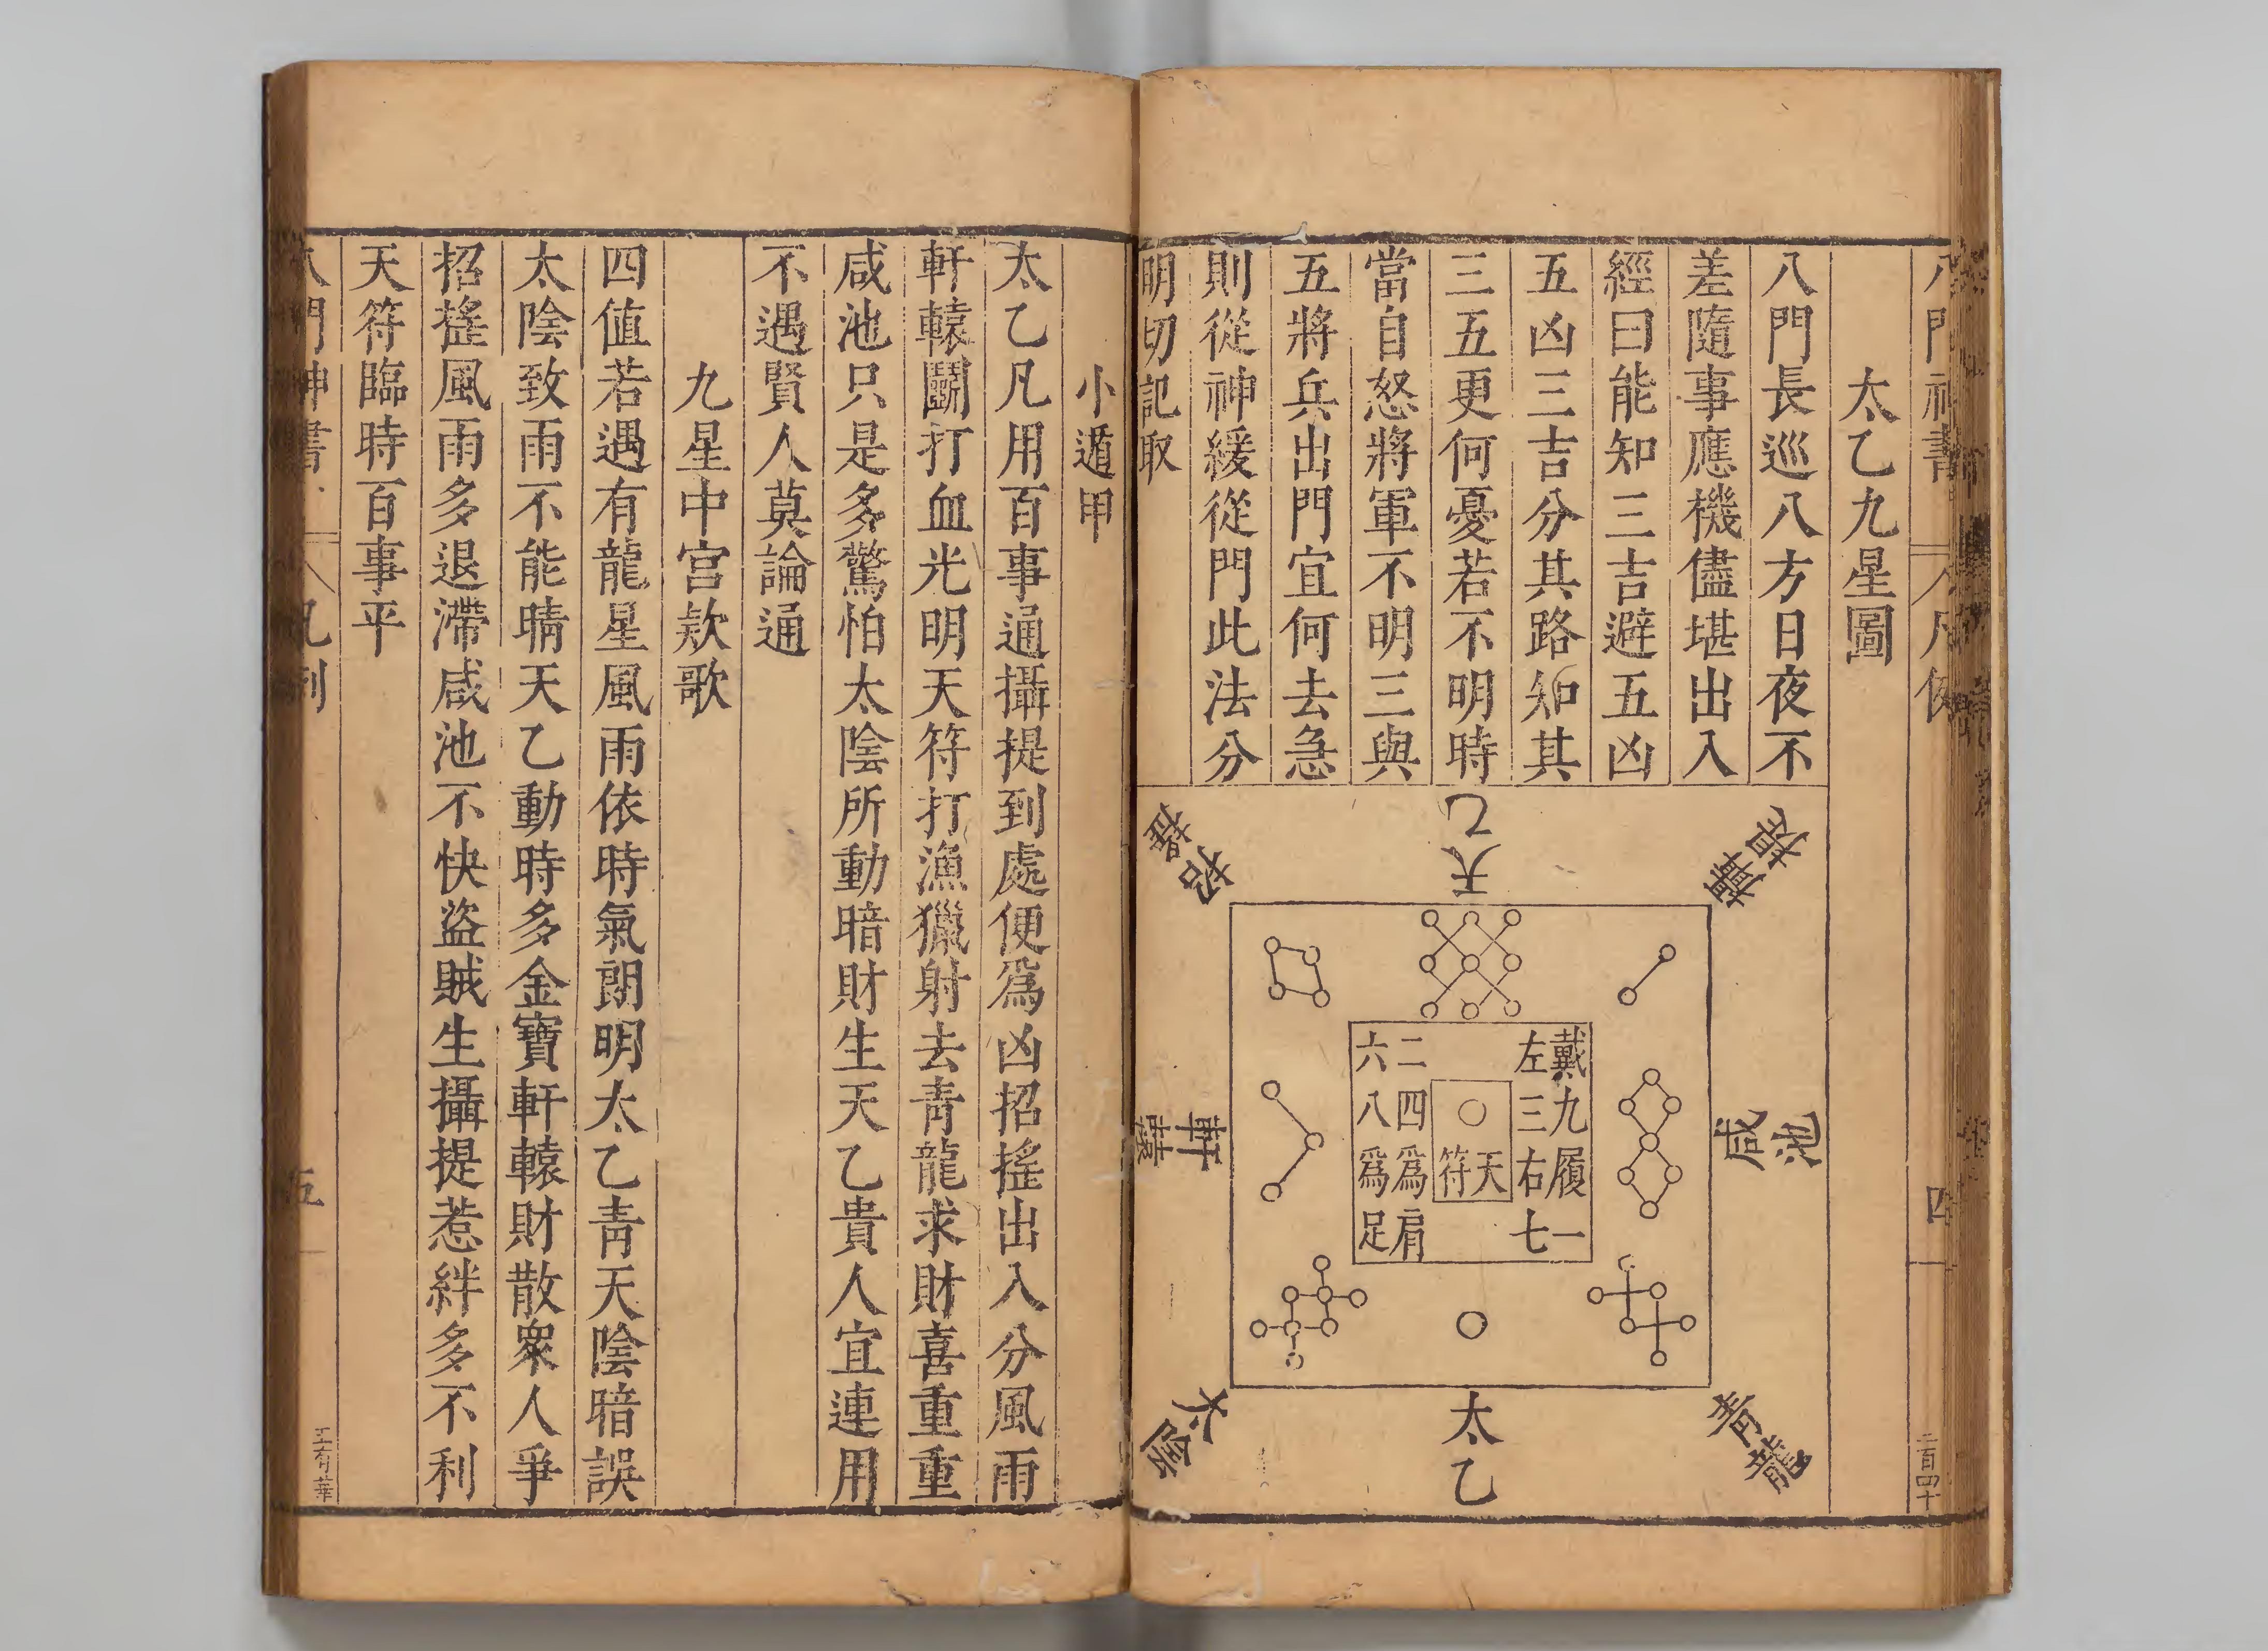 八門神書 凡例 四 二百四十
太乙九星圖
八門長巡八方日夜不
差隨事應機儘堪出入
經曰能知三吉避五凶
五凶三吉分其路知其
三五更何憂若不明時
當自怒將軍不明三與
五將兵出門宜何去急
則從神緩從門此法分
明切記取
攝提
天乙
招搖
咸池
戴九履一
左三右七
天符
二四爲肩
六八爲足
軒轅
青龍
太乙
太陰
小遁甲
太乙凡用百事通攝提到處便爲凶招搖出入分風雨
軒轅鬬打血光明天符打漁獵射去青龍求財喜重重
咸池只是多驚怕太陰所動暗財生天乙貴人宜連用
不遇賢人莫論通
九星中宮欵歌
四值若遇有龍星風雨依時氣朗明太乙青天陰暗誤
太陰致雨不能晴天乙動時多金寶軒轅財散衆人爭
招搖風雨多退滯咸池不快盜賊生攝提惹絆多不利
天符臨時百事平
八門神書 凡例 五 王有華